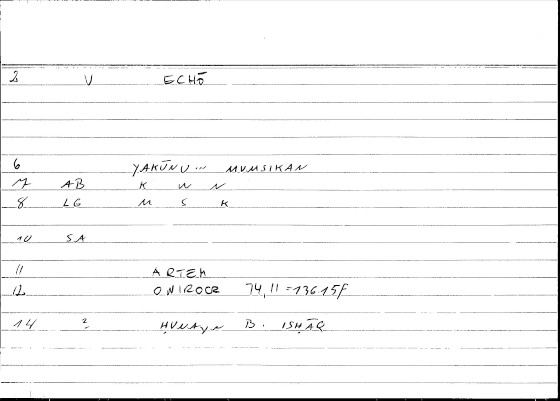 2 V ECHŌ
6 YAKŪNU... MUMSIKAN
7 AB K W N
8 LG M S K
10 SA
11 ARTEM
12 ONIROCR 74,11 = 13615f
14 2 ḤUNAYN B. ISḤĀQ